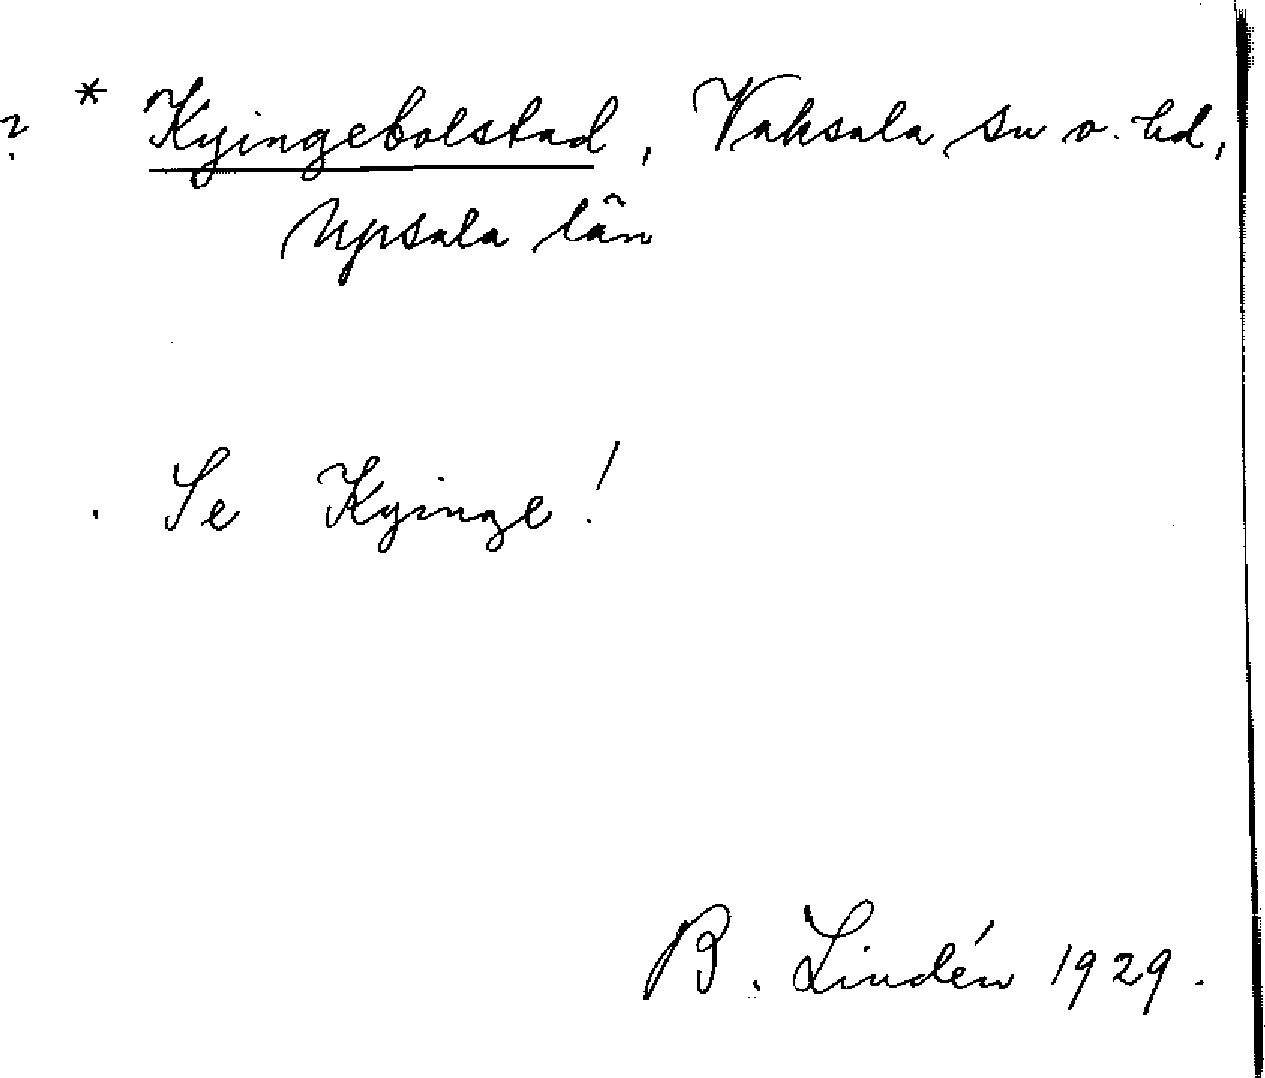 ? * Kyingebolstad, Vaksala sn o. hd,
Upsala län
Se Kyinge!
B. Lindén 1929.